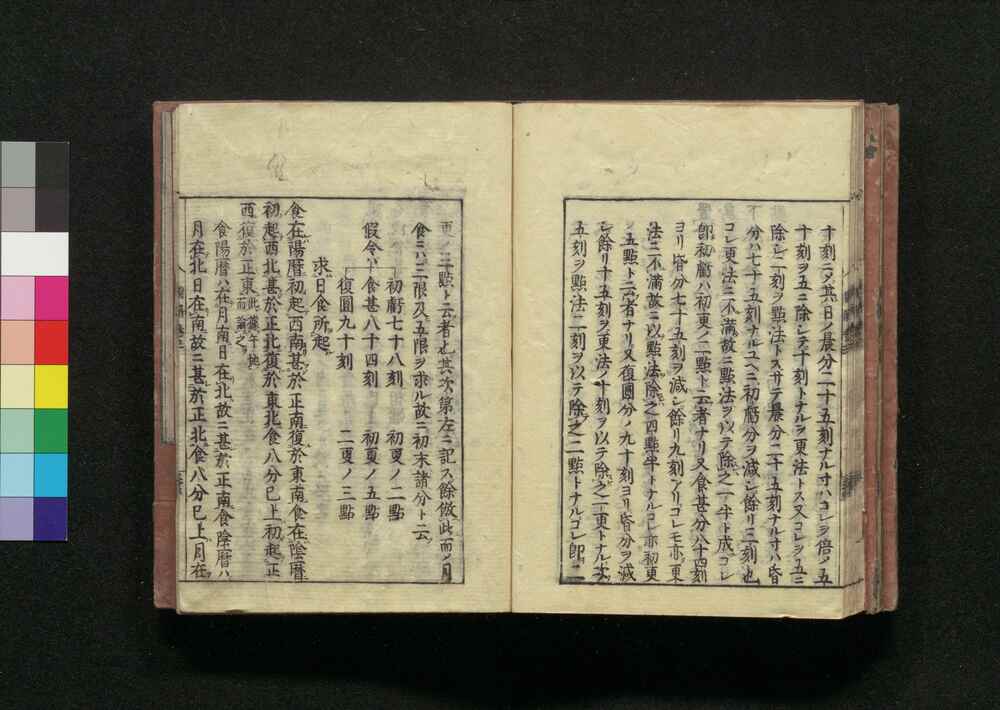 十刻ニメ其日ノ晨分二十五刻ナル寸ハコレヲ倍ノ五
十刻ヲ五ニ除シテ十刻トナルヲ更法トス又コレヲ五ニ
除シ二刻ヲ點法トスサテ晨分二十五刻ナル寸ハ昏
分ハ七十五刻ナルユヘニ初虧分ヲ減シ餘リ三刻也
コレ更法ニ不滿故ニ點法ヲ以テ除之一半ト成コレ
即初虧ハ初更ノ二點ト云者ナリ又食甚分八十四刻
ヨリ昏分七十五刻ヲ減シ餘リ九刻アリコレモ亦更
法ニ不滿故ニ以點法除之四點半トナルコレ亦初更
ノ五點ト云者ナリ又復圓分ノ九十刻ヨリ昏分ヲ減
シ餘リ十五刻ヲ更法ノ十刻ヲ以テ除之一更トナル次
五刻ヲ點法二刻ヲ以テ除之二點トナルコレ即二
更ノ三點ト云者也其次第左ニ記ス餘倣此而ノ月
食ニハ三限及五限ヲ求ル故ニ初末諸分ト云
初虧七十八刻 初更ノ二點
假令ハ 食甚八十四刻 初更ノ五點
復圓九十刻 二更ノ三點
求日食所起
食在陽曆初起西南甚於正南復於東南食在陰曆
初起西北甚於正北復於東北食八分已上初起正
西復於正東此據午地而論之
食陽曆ハ在月南日在北故ニ甚於正南食陰曆ハ
月在北日在南故ニ甚於正北食八分已上月在